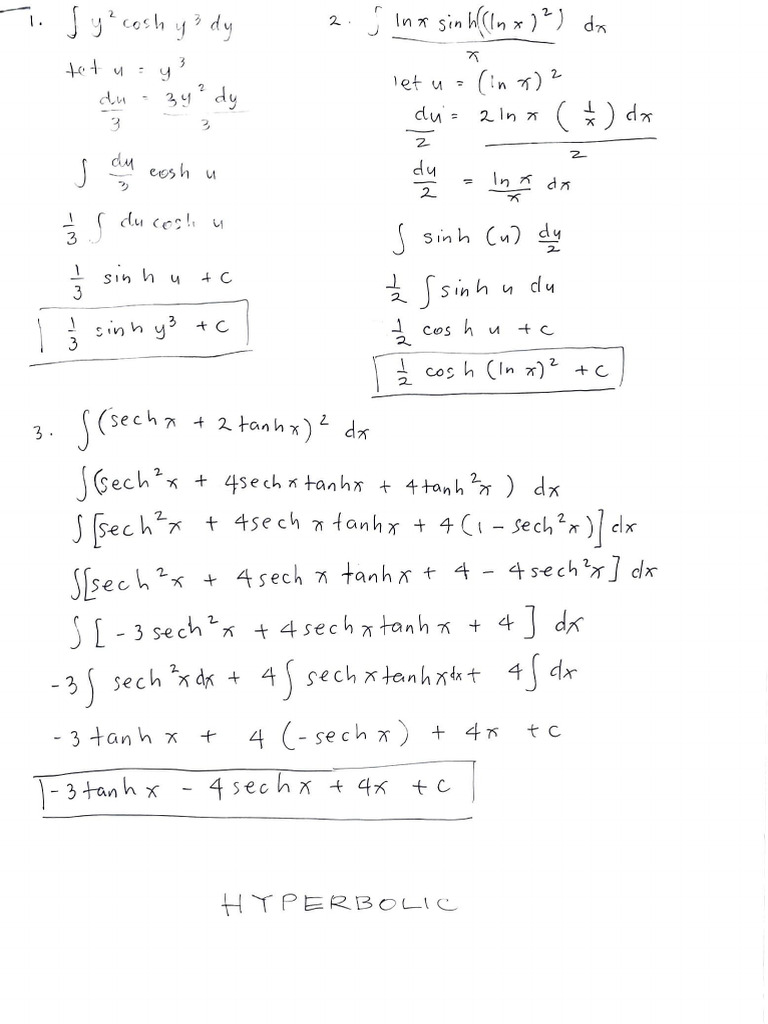 1. ∫ y² cosh y³ dy
let u = y³
du/3 = 3y² dy/3
∫ du/3 cosh u
1/3 ∫ du cosh u
1/3 sinh u + c
1/3 sinh y³ + c
2. ∫ ln x sinh((ln x)²)/x dx
let u = (ln x)²
du/2 = 2 ln x (1/x) dx/2
du/2 = ln x/x dx
∫ sinh (u) du/2
1/2 ∫ sinh u du
1/2 cosh u + c
1/2 cosh (ln x)² + c
3. ∫(sech x + 2 tanh x)² dx
∫(sech² x + 4sech x tanh x + 4 tanh² x) dx
∫[sech² x + 4sech x tanh x + 4(1 - sech² x)] dx
∫[sech² x + 4 sech x tanh x + 4 - 4 sech² x] dx
∫[-3 sech² x + 4 sech x tanh x + 4] dx
-3∫ sech² x dx + 4∫ sech x tanh x dx + 4∫ dx
-3 tanh x + 4 (-sech x) + 4x + c
-3 tanh x - 4 sech x + 4x + c
HYPERBOLIC